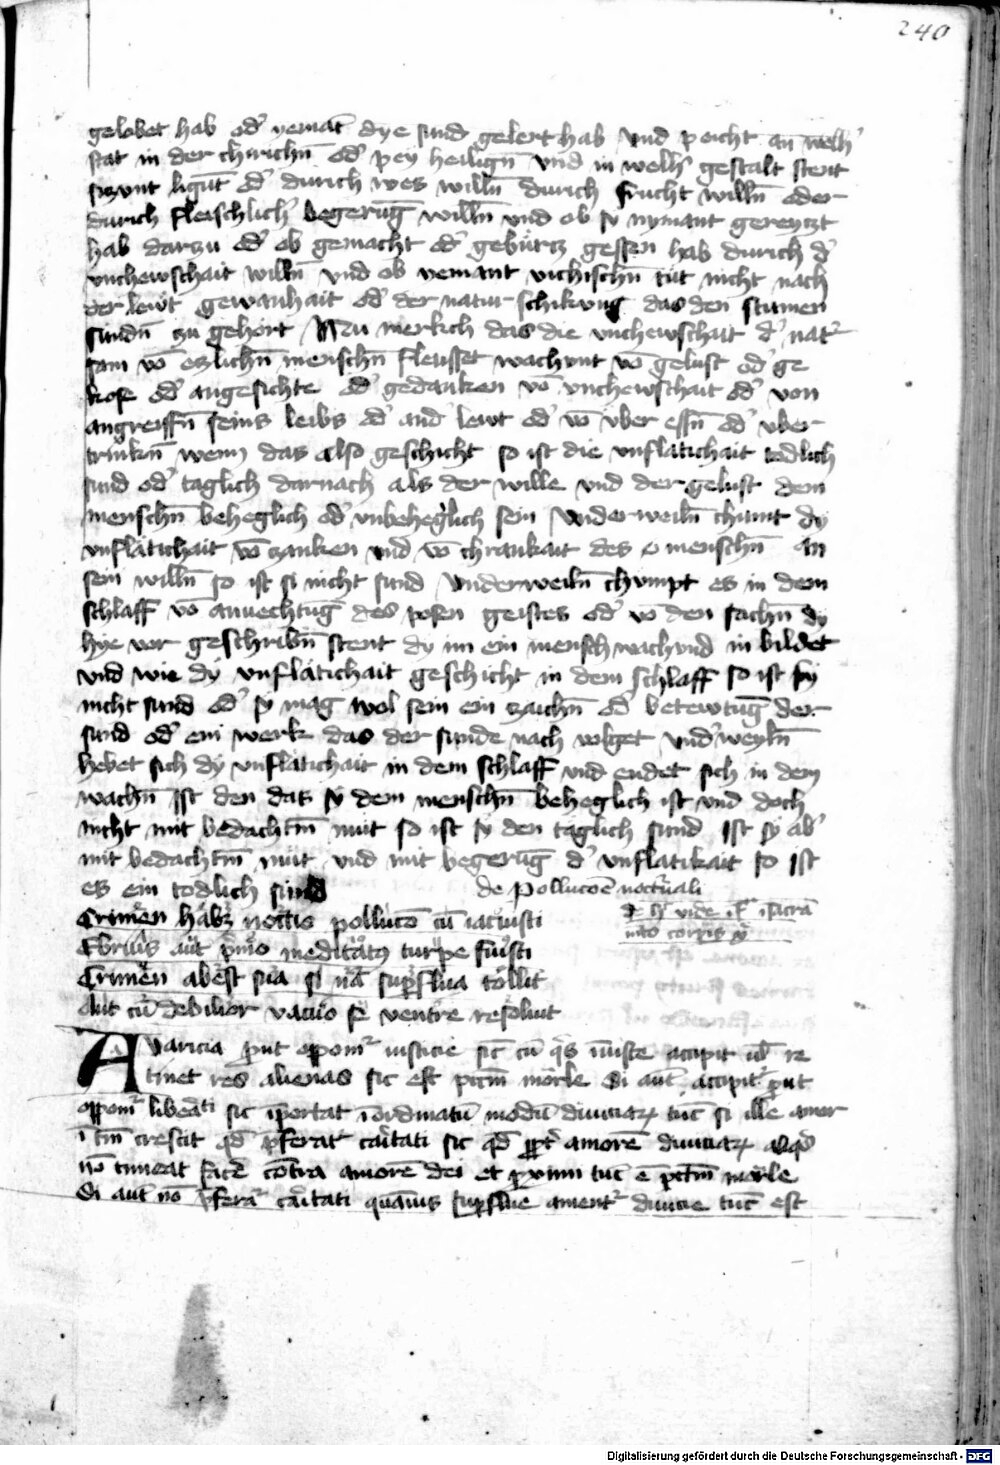 240
gelobet hab od' yemāt dye sund gelert hab vnd peicht an welh'
stat in der chirichn̄ od' pey heilign̄ vnd in welh' gestalt stent
siczunt ligūt od' durich wes willn̄ durich frucht willn̄ oder
durich fleischlich' begerūg willn̄ vnd ob sy nymant gereyczt
hab darzu od' ob gemacht od' gessen hab durich d'
vnchewschait willn̄ vnd ob yemant nicht nach
der lewt gewanhait od' der natur schikvng das den stumen
sundn̄ zu gehort Nu merkch das die vnchewschait d' nat'
sam vō eczlichn̄ menschn̄ flewsset wachunt vō gelust od' ge
kose od' angesichte od' gedanken vō vnchewschait od' von
angreiffn̄ seins leibs od' and' lewt od' vō vber essn̄ od' vber
trinkn̄ wenn das also geschicht so ist die vnflatichait todlich
sund od' taglich darnach als der wille vnd der gelust dem
menschn̄ beheglich od' vnbeheglich sein Vnderweiln̄ chumt dy
vnflatichait vō vnd vō chrankait des menschn̄ an
sein willn̄ so ist si nicht sund Vnderweiln̄ chvmpt es in dem
schlaff vō anuechtūg des posen geistes od' vō den sachn̄ dy
hye vor geschribn̄ stent dy im ein mensch wachund in bildet
vnd wie dy vnflatichait geschicht in dem schlaff so ist sy
nicht sund od' sy mag wol sein ein zaichn̄ od' betewtūg der
sund od' ein werk das der sunde nach volget vnd'weyln̄
hebet sich dy vnflatichait in dem schlaff vnd endet sich in dem
wachn̄ Ist den das sy dem menschn̄ beheglich ist vnd doch
nicht mit bedachtm̄ mut so ist sy den taglich sund Ist sy ab'
mit bedachtm̄ mut vnd mit begerūg d' vnflatikait so ist
es ein todlich sund
de Pollucōe nocturnali
Crimen habz noctis pollucō cū iacuisti
vide
corpis
Ebrius aut p̄mo meditatꝰ turpe fuisti
Crimen abest sua si nā supflua tollit
Aut cū debilior vacuo se ventre resoluit
Avaricia put opponit' iusticie sic cū q̄s iniuste accipit ul' re
tinet res alienas sic est pctm̄ mōrle Si aut accipit' put
opponit' libertati sic iportat iordinatū modū diuiciaꝝ tūc si ille amor
ī tm̄ crescit qd' p̄ferat' caritati sic qd' ppt' amorē diuiciaꝝ aliqd'
nō timeat facē contra amorē dei et pximi tūc ē pctm̄ mōrle
Si aut nō p̄ferat' caritati quāuis supflue ament' diuicie tūc est
Digitalisierung gefördert durch die Deutsche Forschungsgemeinschaft - DFG